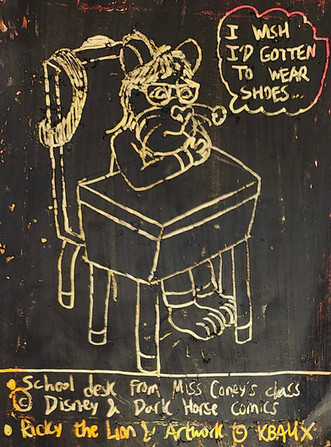 I WISH
I'D GOTTEN
TO WEAR
SHOES...
• School desk from Miss Coney's class
© Disney & Dark Horse comics
• Ricky the Lion & Artwork © KBAFX